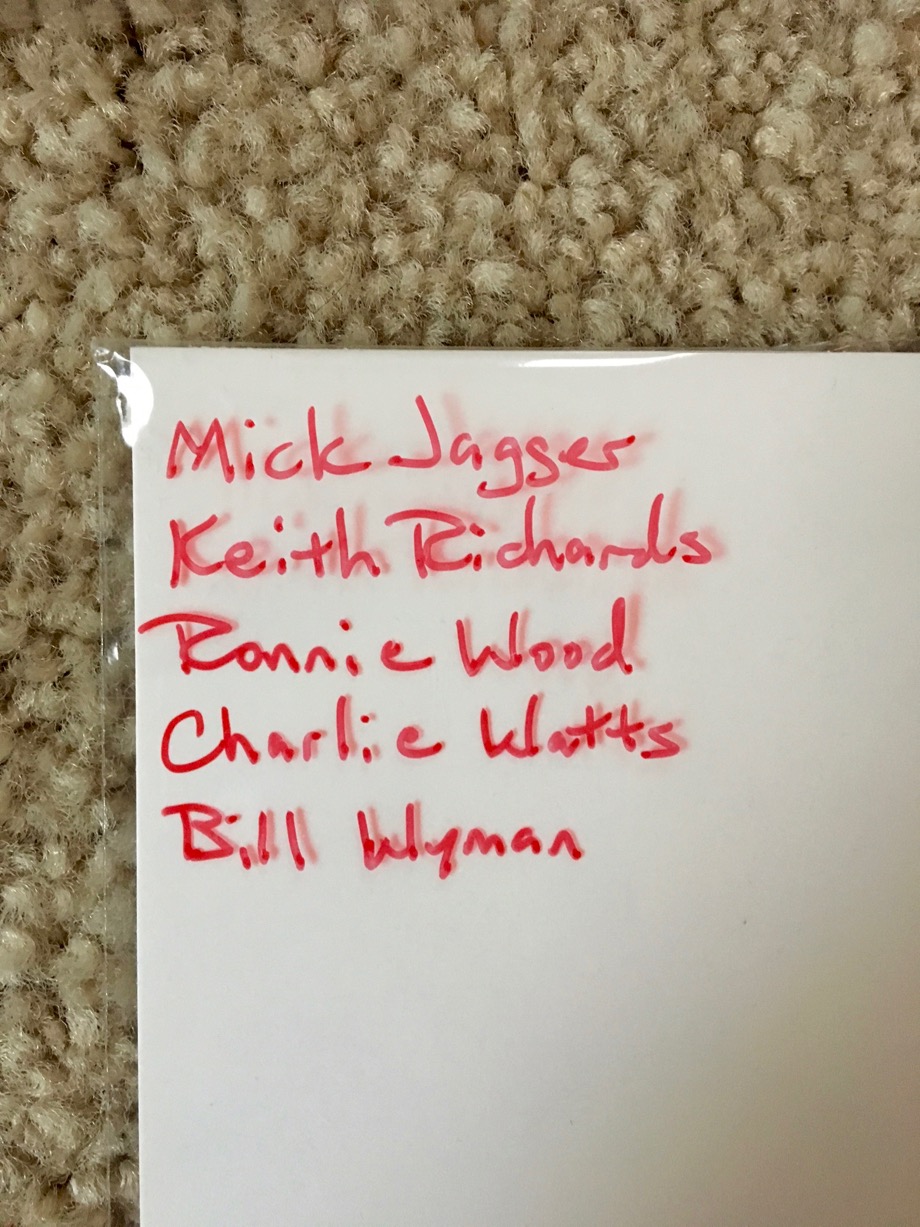 Mick Jagger
Keith Richards
Ronnie Wood
Charlie Watts
Bill Wyman